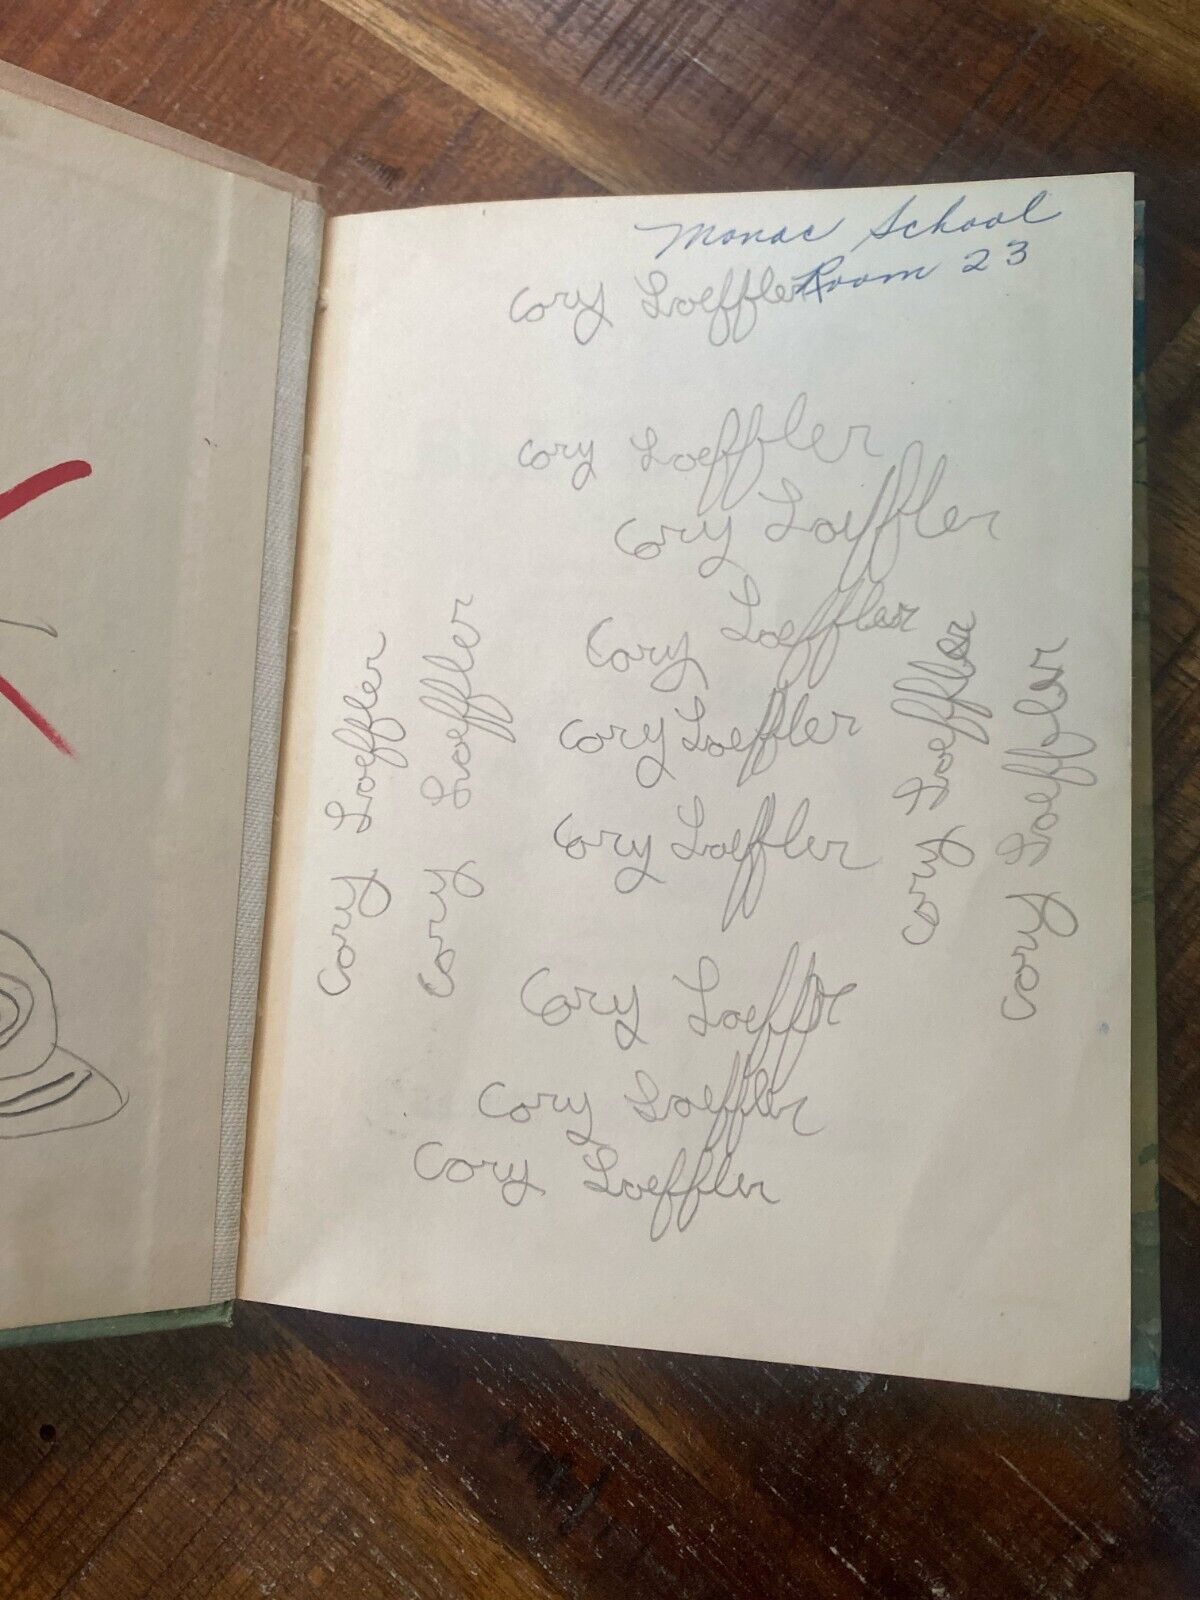 Monac School
Room 23
Cory Loeffler
Cory Loeffler
Cory Loeffler
Cory Loeffler
Cory Loeffler
Cory Loeffler
Cory Loefflr
Cory Loeffler
Cory Loeffler
Cory Loeffler
Cory Loeffler
Cory Loeffler
Cory Loeffler